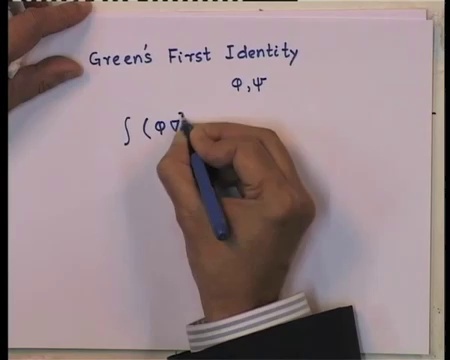 Green's First Identity
φ, ψ
∫ (φ ∇²